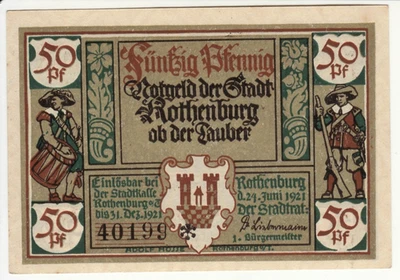 50 Pf
Fünfzig Pfennig
50 Pf
Notgeld der Stadt
Rothenburg
ob der Tauber
Einlösbar bei
der Stadtkasse
Rothenburg
bis 31. Dez. 1921
40199
Rothenburg
d. 24. Juni 1921
Der Stadtrat:
1. Bürgermeister
50 Pf
50 Pf
Rothenburg o/T.